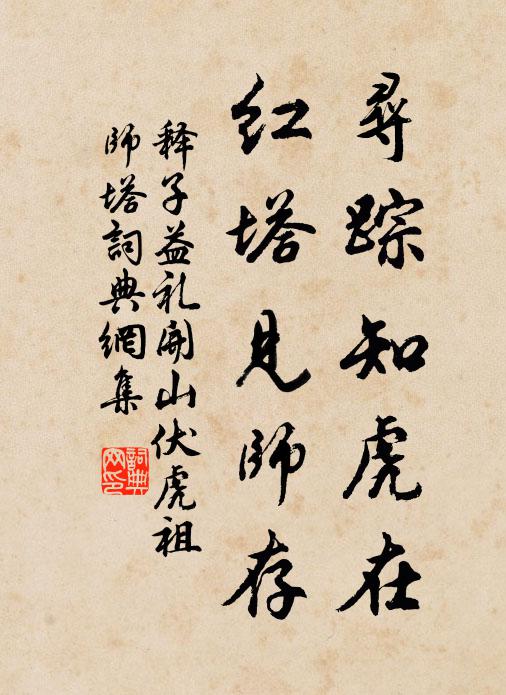 尋踪知虎在
红塔見師存
释子益礼開山伏虎祖
師塔詞典網集
詞典網印